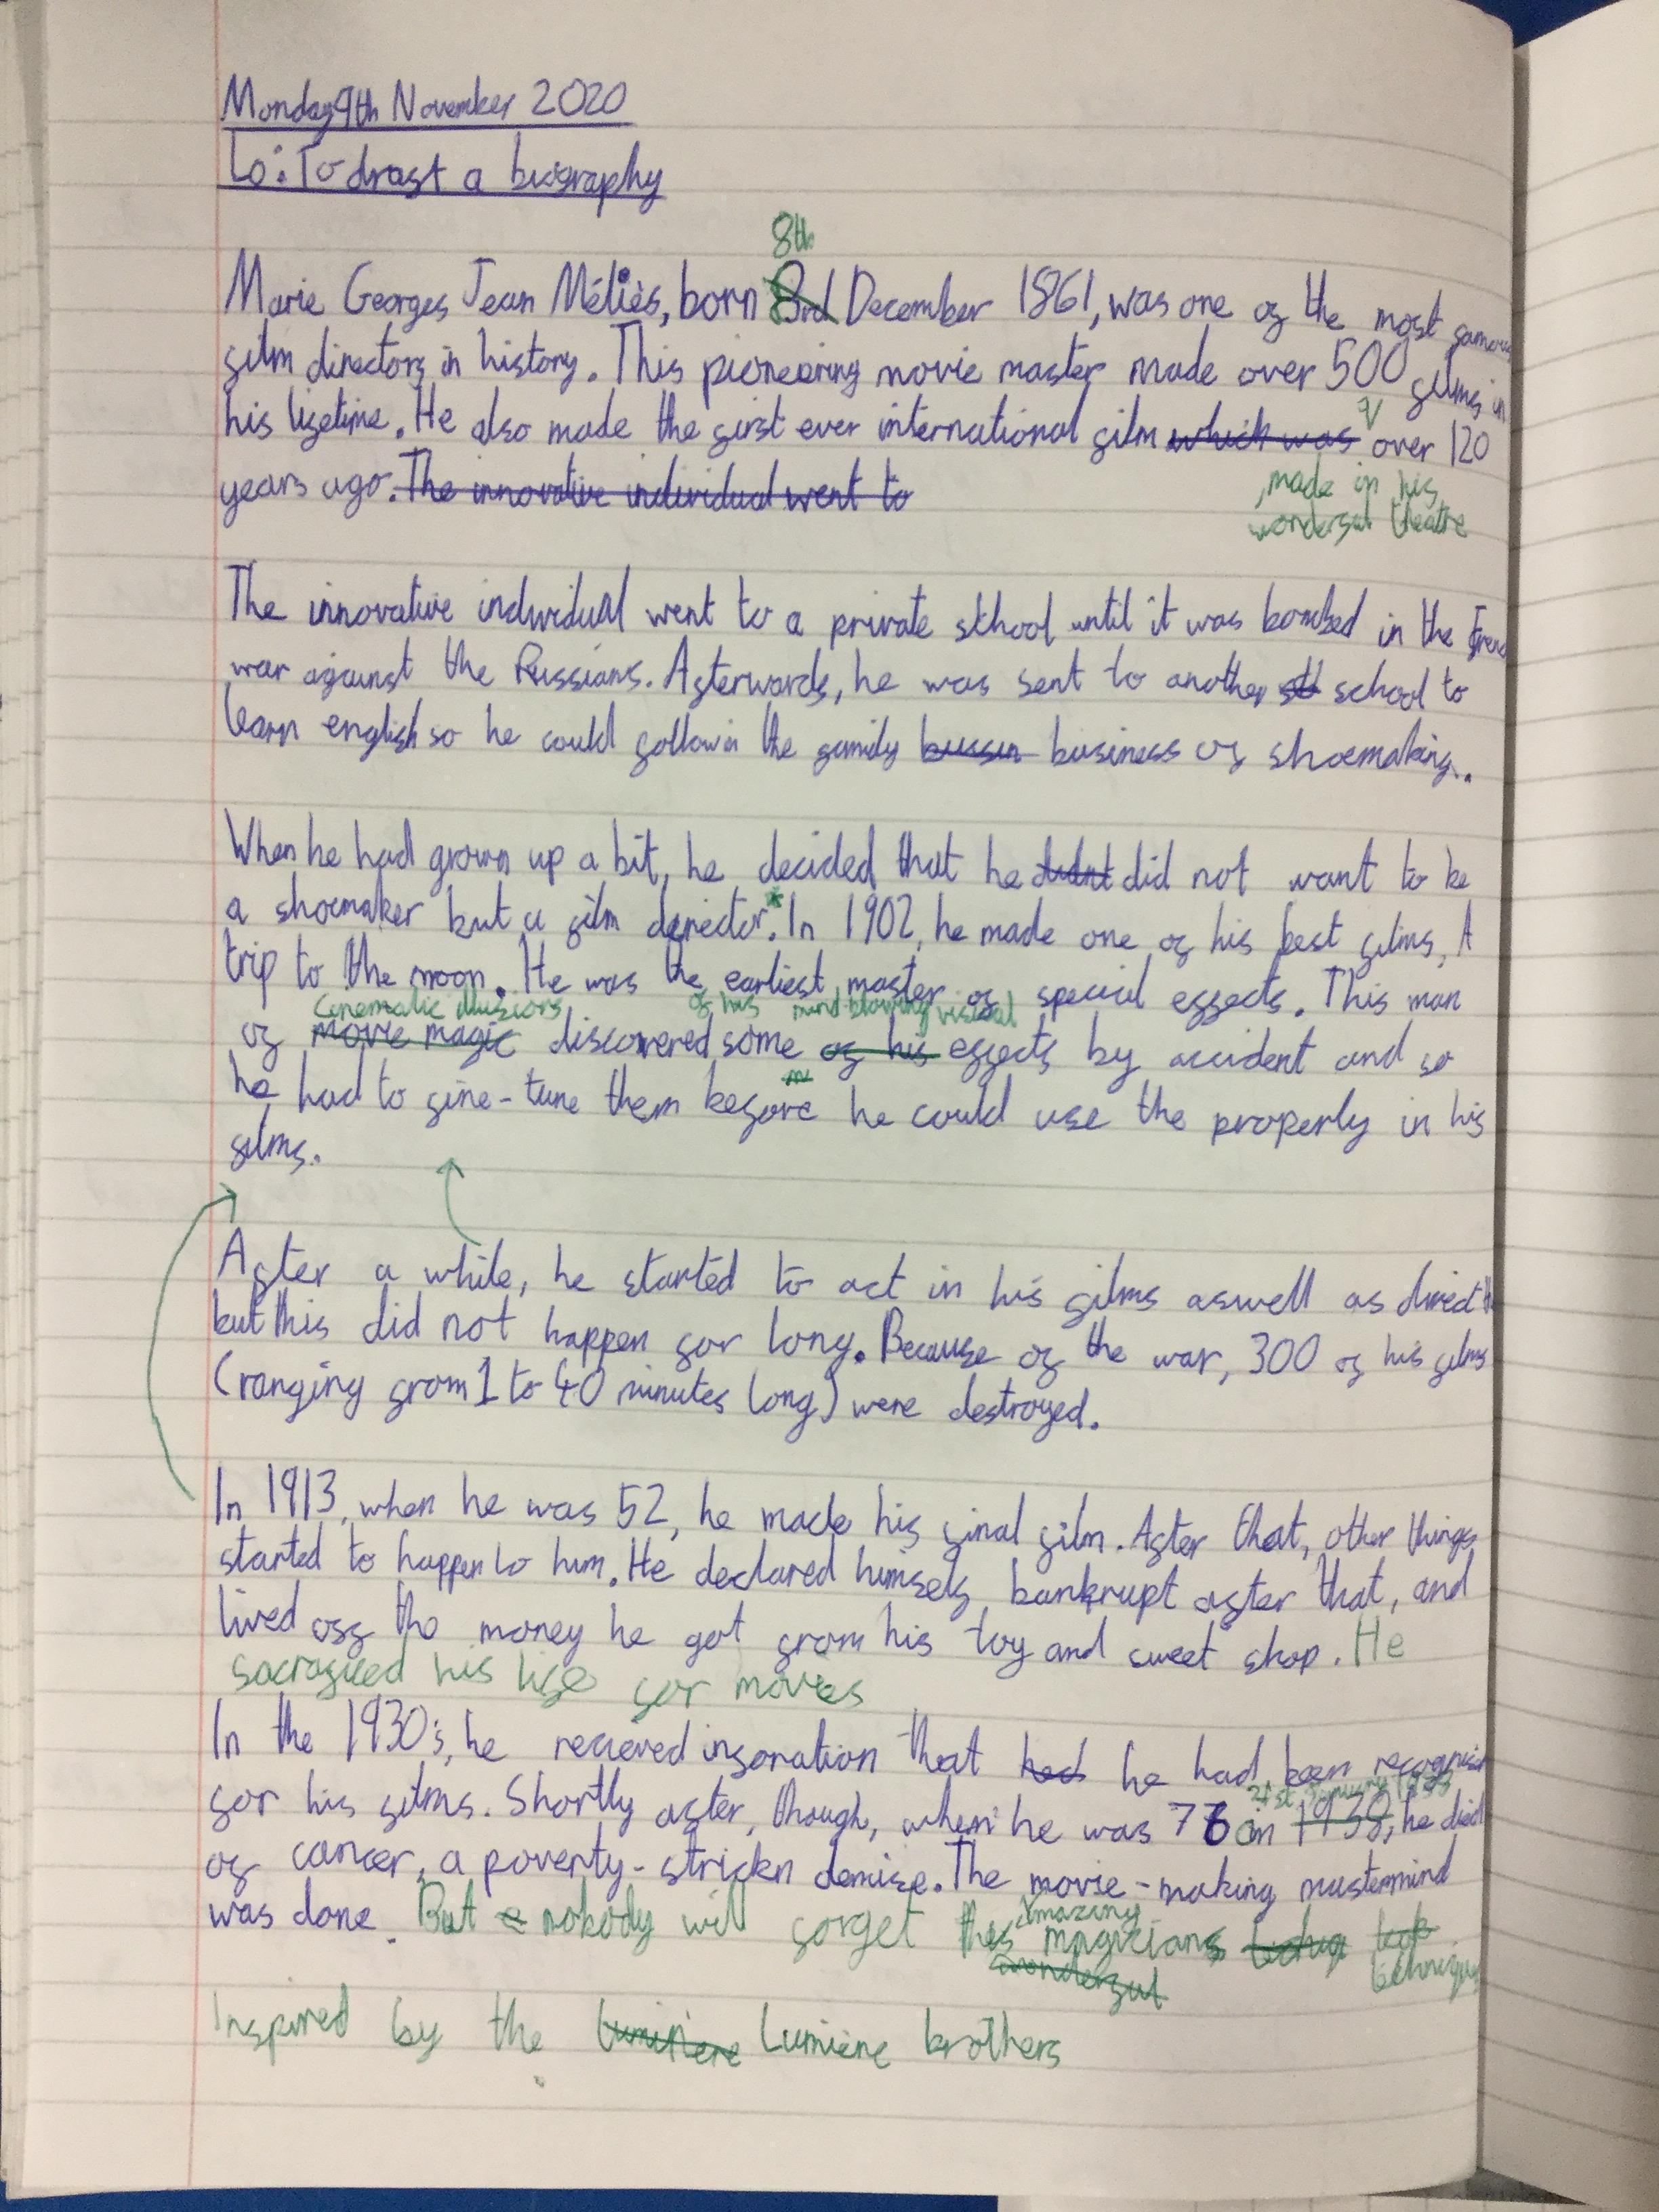 Monday 9th November 2020
Lo: To draft a biography
8th
Marie Georges Jean Méliès, born 3rd December 1861, was one of the most famous
film directors in history. This pioneering movie master made over 500 films in
his lifetime. He also made the first ever international film which was over 120
years ago. The innovative individual went to
, made in his
wonderful theatre
The innovative individual went to a private school until it was bombed in the
war against the Russians. Afterwards, he was sent to another school to
learn english so he could follow in the family business of shoemaking.
When he had grown up a bit, he decided that he didnt did not want to be
a shoemaker but a film director.* In 1902, he made one of his best films, A
trip to the moon. He was the earliest master of special effects. This man
cinematic illusions of his mind-blowing visual
of movie magic discovered some of his effects by accident and so
he had to fine-tune them before he could use the properly in his
films.
After a while, he started to act in his films aswell as direct
but this did not happen for long. Because of the war, 300 of his films
(ranging from 1 to 40 minutes long) were destroyed.
In 1913, when he was 52, he made his final film. After that, other things
started to happen to him. He declared himself bankrupt after that, and
lived off the money he got from his toy and sweet shop. He
sacrasiced his life for movies
In the 1930's, he recieved insoration that had he had been
21st January 1938
for his films. Shortly after, though, when he was 76 in 1938, he died
of cancer, a poverty-strickn demise. The movie-making mastermind
Amazing
was done. But nobody will forget this magicians
wonderful
Inspired by the Lumière brothers